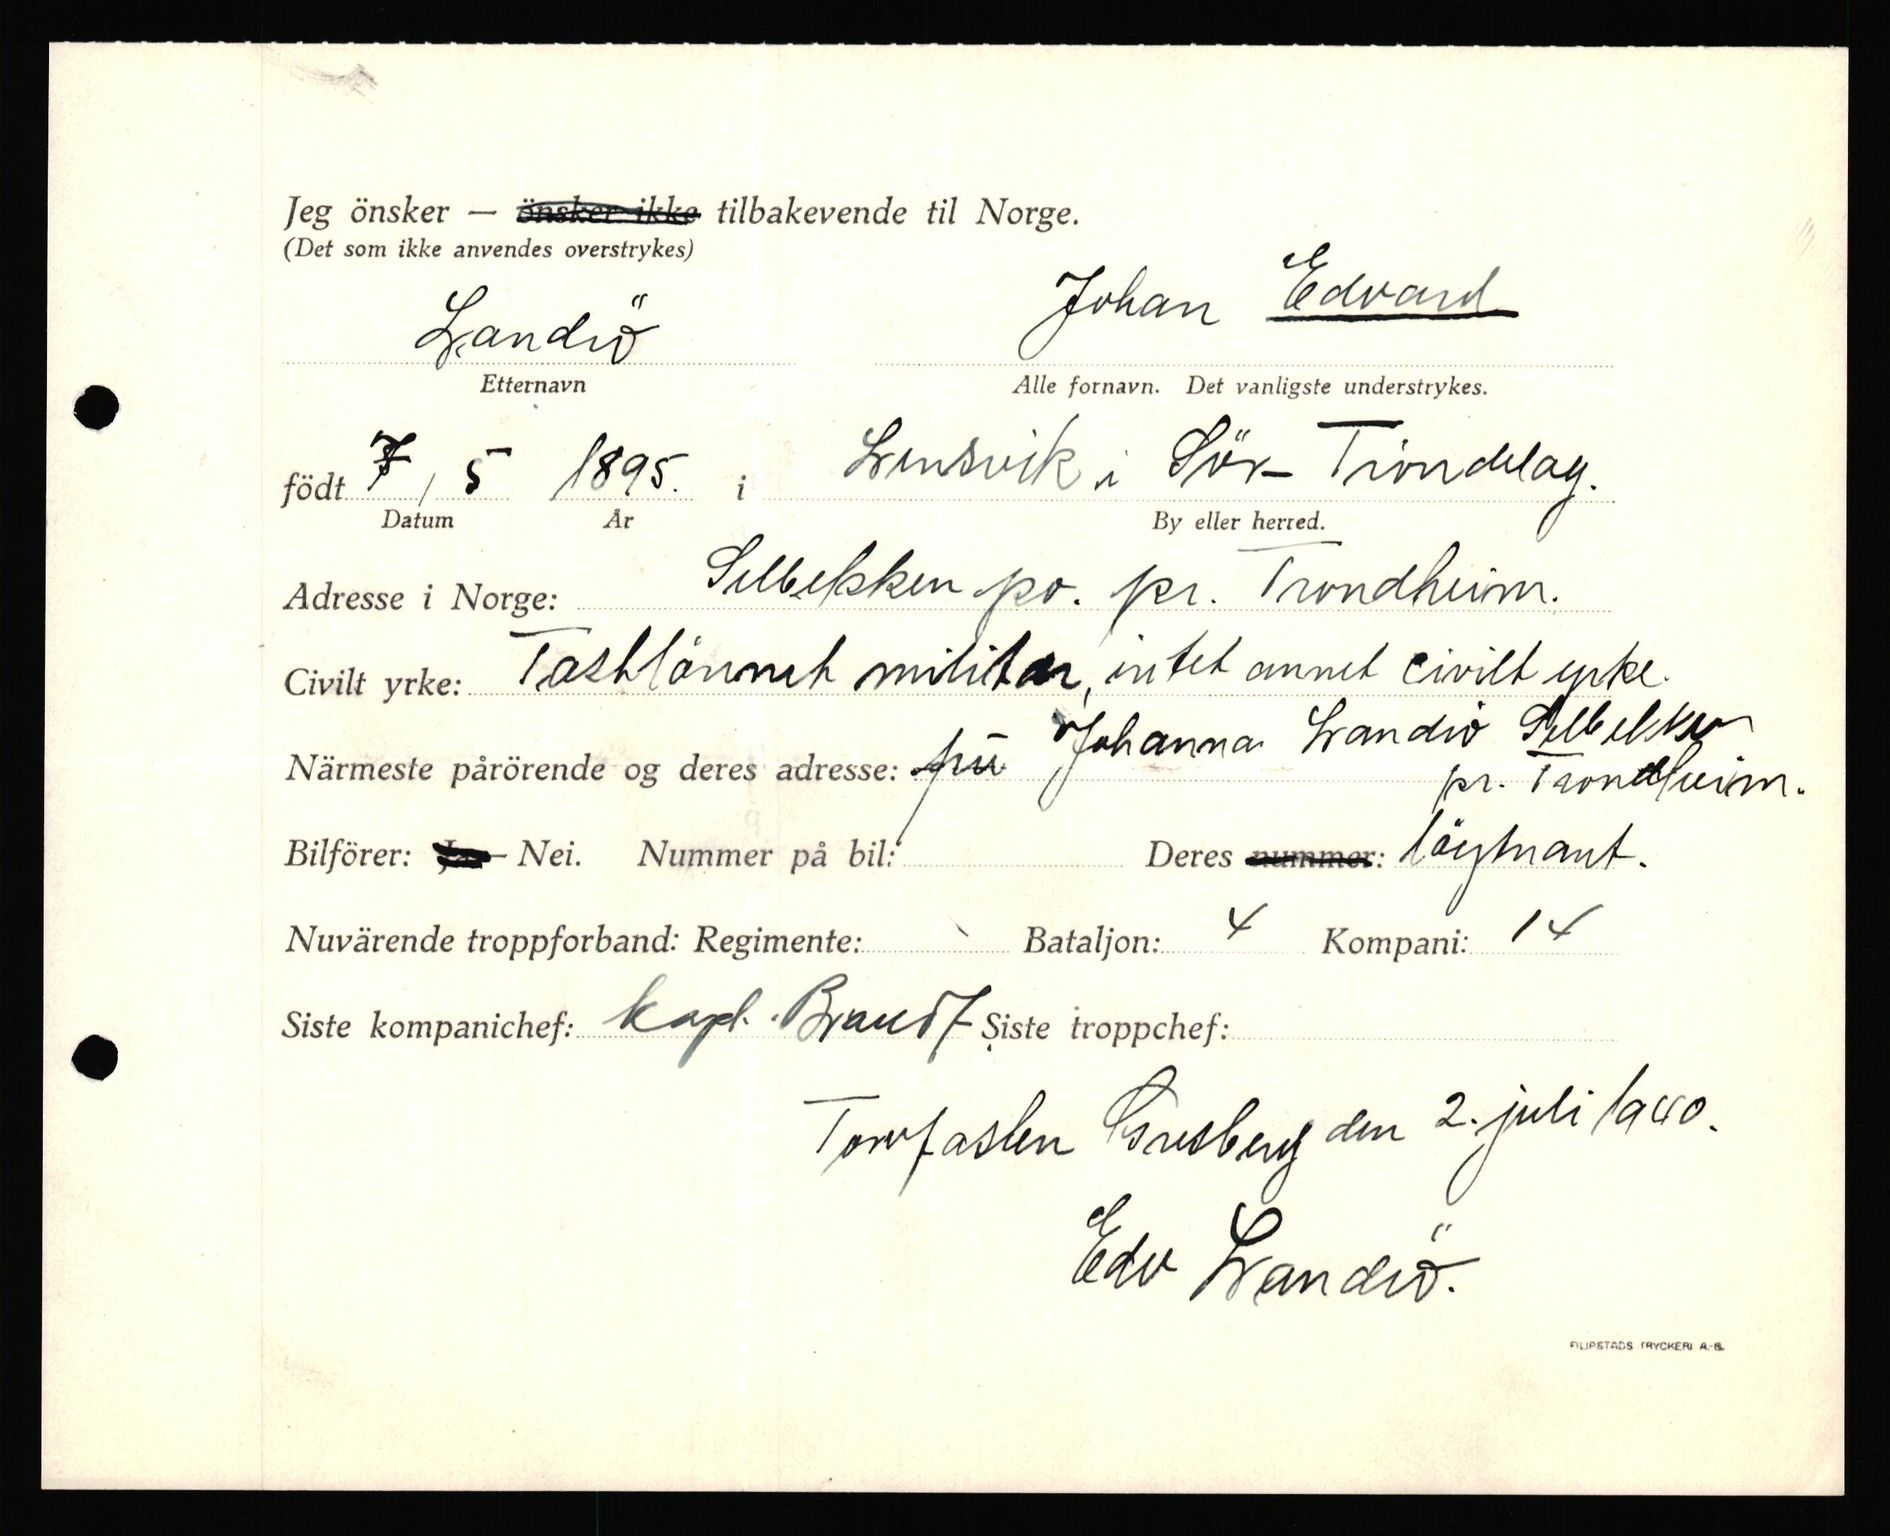 Jeg önsker — önsker ikke tilbakevende til Norge.
(Det som ikke anvendes overstrykes)
Landrö Johan Edvard
Etternavn Alle fornavn. Det vanligste understrykes.
födt 7 / 5 1895. i Lensvik i Sör-Tröndelag.
Datum År By eller herred.
Adresse i Norge: Selbekken po. pr. Trondheim.
Civilt yrke: Fastlönnet militær, intet annet civilt yrke.
Närmeste pårörende og deres adresse: fru Johanna Landrö Selbekken
pr. Trondheim.
Bilförer: Ja – Nei. Nummer på bil: Deres nummer: löytnant.
Nuvärende troppforband: Regimente: Bataljon: 4 Kompani: 14
Siste kompanichef: kapt. Brandt Siste troppchef:
Gresberg den 2. juli 1940.
Edv Landrö.
FILIPSTADS TRYCKERI A.-B.